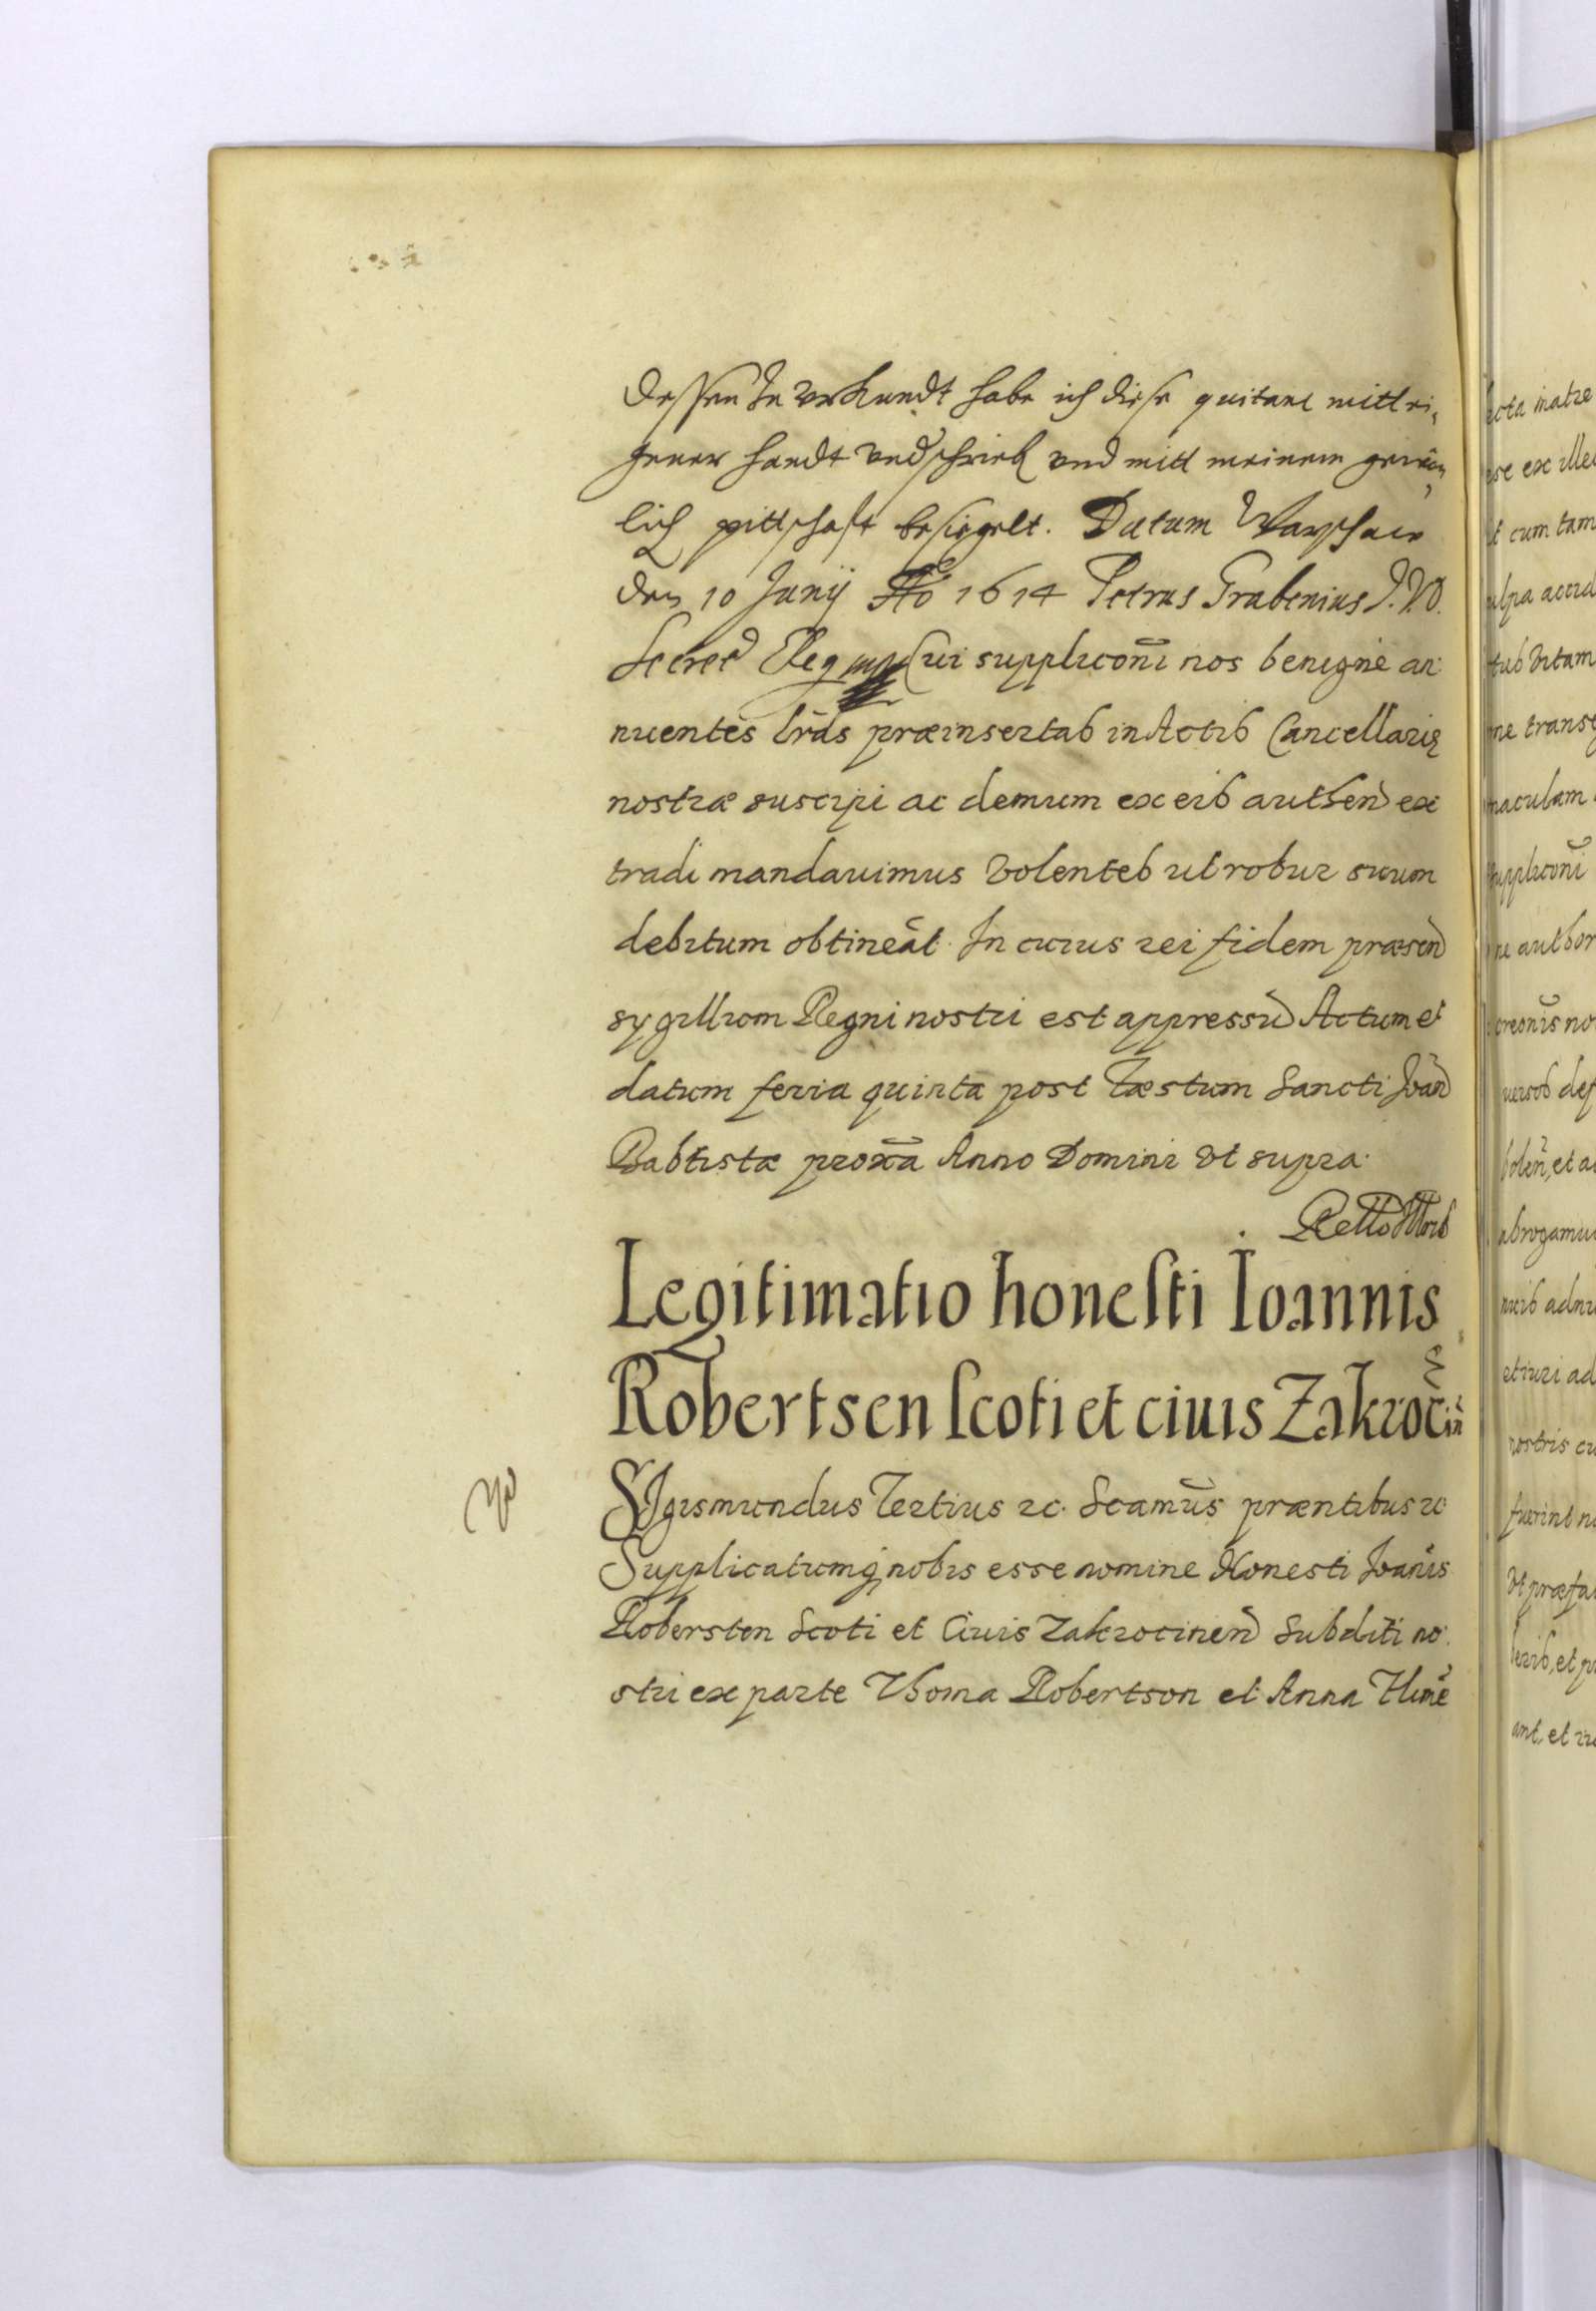 dessen zu vrkundt habe ich diese quitanc mitt ei,
gener handt vndschrieb vnd mitt meinem gewön,
lich pittschaft besiegelt. Datum Warschaw
den 10 Junij Ao 1614 Petrus Grabenius J.V.D.
Secred Reg mp Cui suppliconi nos benigne an:
nuentes lras præinsertas in Actis Cancellarię
nostræ suscipi ac demum ex eis authen ex
tradi mandauimus volentes ut robur suum
debitum obtineat. In cuius rei fidem præsen
sygillum Regni nostri est appressu Actum et
datum feria quinta post Fæstum Sancti Joan
Babtistæ proxa Anno Domini vt supra.
Legitimatio honesti Ioannis
Robertsen scoti et ciuis Zakrocin
SIgismundus Tertius rc. Scamus præntibus rc
Supplicatumq nobis esse nomine Honesti Joanis
Robersten Scoti et Ciuis Zakrocinen Subditi no:
stri ex parte Thoma Robertson et Anna